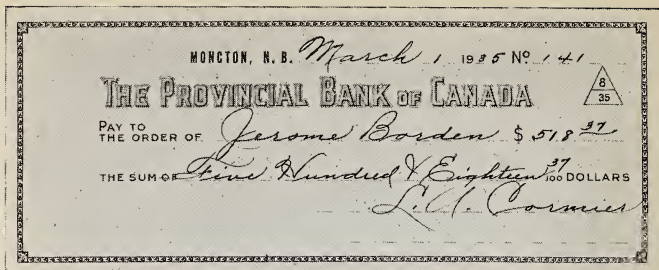 MONCTON, N. B. March 1 1935 Nº 141
THE PROVINCIAL BANK OF CANADA
8
35
PAY TO
THE ORDER OF Jerome Borden $ 518 37
THE SUM OF Five Hundred & Eighteen 37/100 DOLLARS
L. A. Cormier